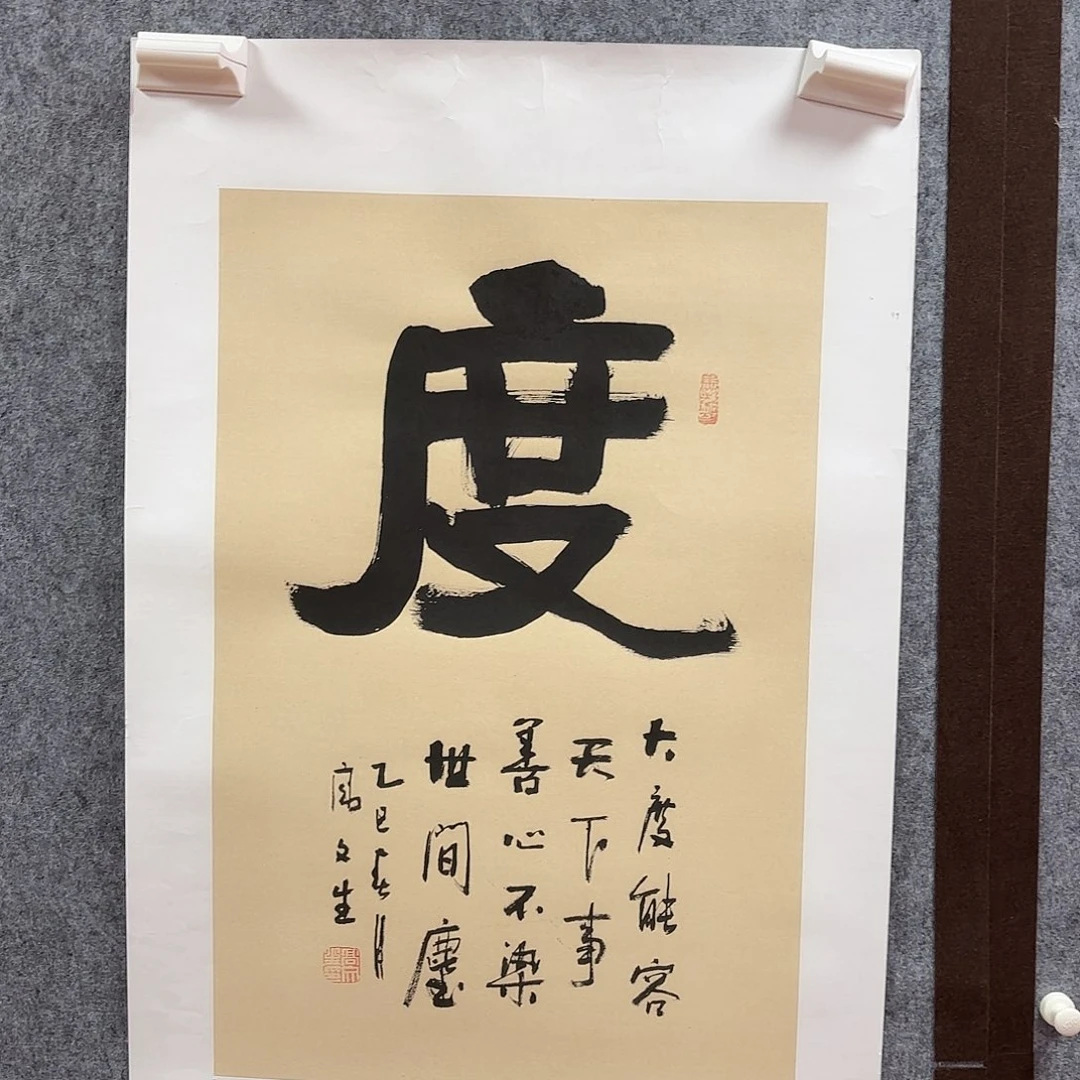 度
大度能容
天下事
善心不染
世间塵
乙巳春月
高文生